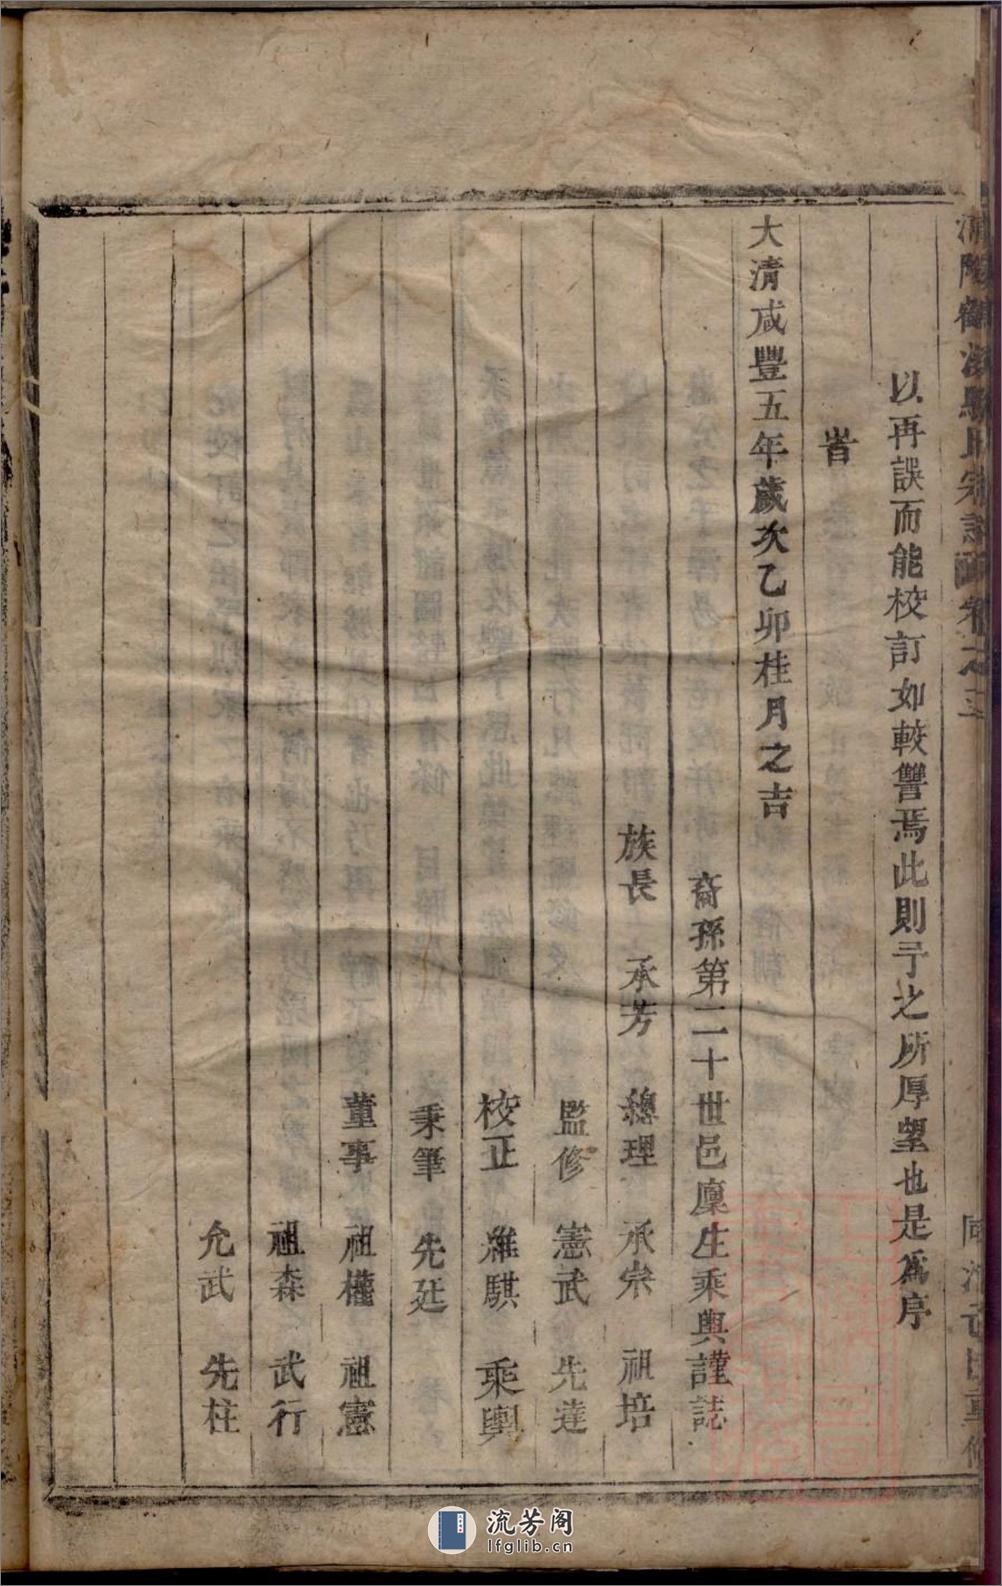 以再誤而能校訂如較讐焉此則予之所厚望也是爲序
旹
大清咸豐五年歲次乙卯桂月之吉
裔孫第二十世邑廩生乘輿謹誌
族長 承芳 總理 承宗 祖培
監修 憲武 先達
校正 維騏 乘輿
秉筆 先廷
董事 祖權 祖憲
祖森 武行
允武 先柱
流芳阁
lfglib.cn